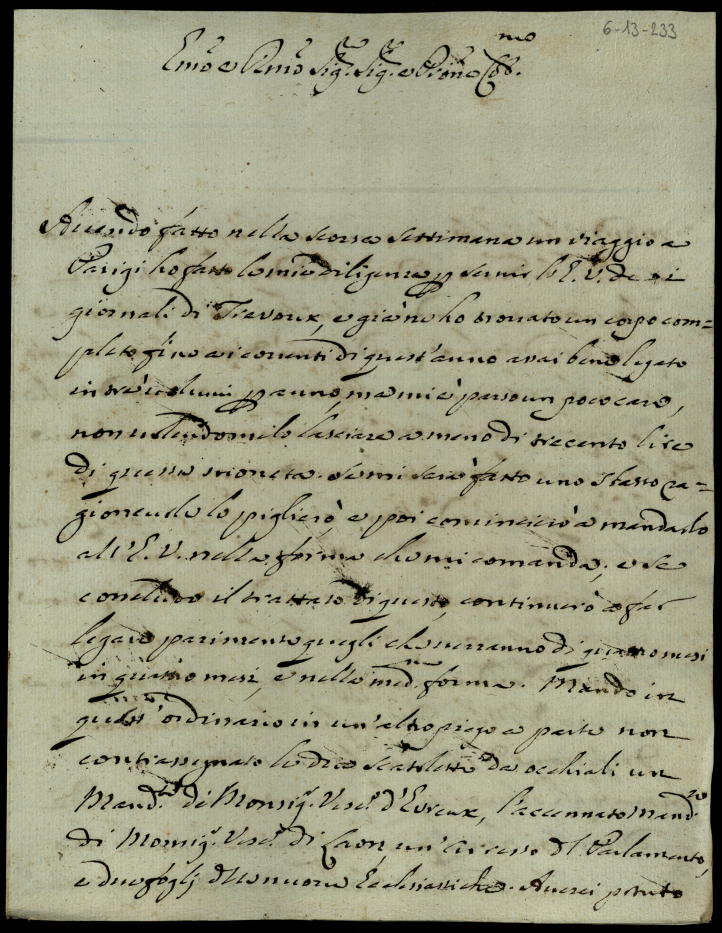 6-13-233
Em.o e Rm.o Sig.r Sig.r e Pron.e Col.mo
Avendo fatto nella scorsa settimana un viaggio a
Parigi ho fatto le mie diligenze p servir l'E. V. de i
giornali di Trevoux, e già ne ho trovato un corpo com=
pleto fino a i correnti di quest'anno assai bene legato
in trè volumi p anno, ma mi è parso un poco caro,
non volendomilo lasciare a meno di trecento lire
di questa moneta. Se mi sera fatto uno stasso ra=
gionevole lo piglierò, e poi comincierò a mandarlo
all'E. V. nella forma che mi comanda; e se
concludo il trattato di questo, continuerò a far
legare parimente quegli che verranno di quattro mesi
in quattro mesi, e nella med.ma forma. Mando in
quest'ordinario in un'altro piego a parte non
contrassegnato le due scatolette da occhiali un
Mand.to di Monsig.r Vesc.o d'Evreux, l'accennato Mand.to
di Monsig.r Vesc.o di Laon, un'Arresto del Parlamento,
e due foglj delle nuove Ecclesiastiche. Averei potuto